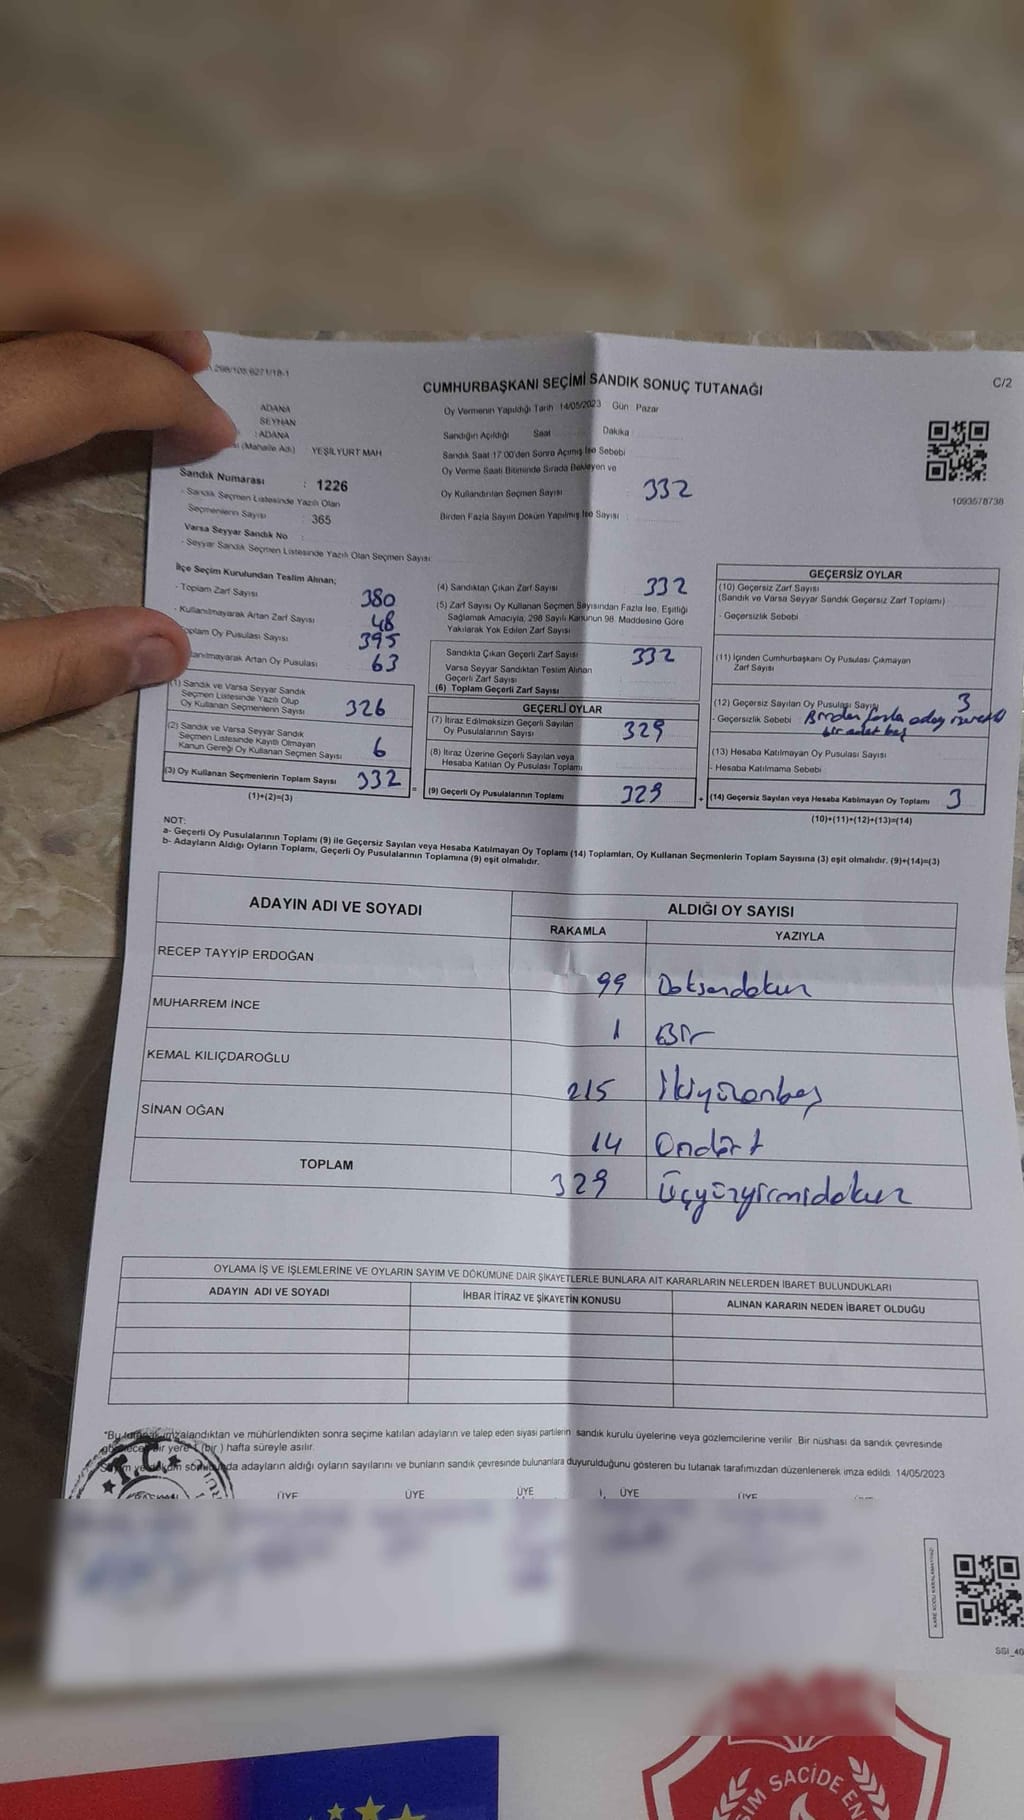 298/105.6271/18-1
C/2
CUMHURBAŞKANI SEÇİMİ SANDIK SONUÇ TUTANAĞI
ADANA
SEYHAN
ADANA
(Mahalle Adı) YEŞİLYURT MAH
Sandık Numarası : 1226
- Sandık Seçmen Listesinde Yazılı Olan
Seçmenlerin Sayısı : 365
Varsa Seyyar Sandık No :
- Seyyar Sandık Seçmen Listesinde Yazılı Olan Seçmen Sayısı:
Oy Vermenin Yapıldığı Tarih 14/05/2023 Gün Pazar
Sandığın Açıldığı Saat Dakika
Sandık Saat 17.00'den Sonra Açılmış İse Sebebi
Oy Verme Saati Bitiminde Sırada Bekleyen ve
Oy Kullandırılan Seçmen Sayısı 332
Birden Fazla Sayım Döküm Yapılmış İse Sayısı
1093578738
İlçe Seçim Kurulundan Teslim Alınan;
- Toplam Zarf Sayısı 380
- Kullanılmayarak Artan Zarf Sayısı 48
Toplam Oy Pusulası Sayısı 395
Artan Oy Pusulası 63
(1) Sandık ve Varsa Seyyar Sandık
Seçmen Listesinde Yazılı Olup
Oy Kullanan Seçmenlerin Sayısı 326
(2) Sandık ve Varsa Seyyar Sandık
Seçmen Listesinde Kayıtlı Olmayan
Kanun Gereği Oy Kullanan Seçmen Sayısı 6
(3) Oy Kullanan Seçmenlerin Toplam Sayısı 332 =
(1)+(2)=(3)
(4) Sandıktan Çıkan Zarf Sayısı 332
(5) Zarf Sayısı Oy Kullanan Seçmen Sayısından Fazla İse, Eşitliği
Sağlamak Amacıyla, 298 Sayılı Kanunun 98. Maddesine Göre
Yakılarak Yok Edilen Zarf Sayısı
Sandıkta Çıkan Geçerli Zarf Sayısı 332
Varsa Seyyar Sandıktan Teslim Alınan
Geçerli Zarf Sayısı
(6) Toplam Geçerli Zarf Sayısı
GEÇERLİ OYLAR
(7) İtiraz Edilmeksizin Geçerli Sayılan
Oy Pusulalarının Sayısı 329
(8) İtiraz Üzerine Geçerli Sayılan veya
Hesaba Katılan Oy Pusulası Toplamı
(9) Geçerli Oy Pusulalarının Toplamı 329 +
GEÇERSİZ OYLAR
(10) Geçersiz Zarf Sayısı
(Sandık ve Varsa Seyyar Sandık Geçersiz Zarf Toplamı)
- Geçersizlik Sebebi
(11) İçinden Cumhurbaşkanı Oy Pusulası Çıkmayan
Zarf Sayısı
(12) Geçersiz Sayılan Oy Pusulası Sayısı 3
- Geçersizlik Sebebi Birden fazla aday
bir adet boş
(13) Hesaba Katılmayan Oy Pusulası Sayısı
- Hesaba Katılmama Sebebi
(14) Geçersiz Sayılan veya Hesaba Katılmayan Oy Toplamı 3
(10)+(11)+(12)+(13)=(14)
NOT:
a- Geçerli Oy Pusulalarının Toplamı (9) ile Geçersiz Sayılan veya Hesaba Katılmayan Oy Toplamı (14) Toplamları, Oy Kullanan Seçmenlerin Toplam Sayısına (3) eşit olmalıdır. (9)+(14)=(3)
b- Adayların Aldığı Oyların Toplamı, Geçerli Oy Pusulalarının Toplamına (9) eşit olmalıdır.
ADAYIN ADI VE SOYADI ALDIĞI OY SAYISI
RAKAMLA YAZIYLA
RECEP TAYYİP ERDOĞAN 99 Doksandokuz
MUHARREM İNCE 1 Bir
KEMAL KILIÇDAROĞLU 215 İkiyüzonbeş
SİNAN OĞAN 14 Ondört
TOPLAM 329 Üçyüzyirmidokuz
OYLAMA İŞ VE İŞLEMLERİNE VE OYLARIN SAYIM VE DÖKÜMÜNE DAİR ŞİKAYETLERLE BUNLARA AİT KARARLARIN NELERDEN İBARET BULUNDUKLARI
ADAYIN ADI VE SOYADI İHBAR İTİRAZ VE ŞİKAYETİN KONUSU ALINAN KARARIN NEDEN İBARET OLDUĞU
"Bu tutanak imzalandıktan ve mühürlendikten sonra seçime katılan adayların ve talep eden siyasi partilerin sandık kurulu üyelerine veya gözlemcilerine verilir. Bir nüshası da sandık çevresinde
bir yere 1 (bir) hafta süreyle asılır.
sonunda adayların aldığı oyların sayılarını ve bunların sandık çevresinde bulunanlara duyurulduğunu gösteren bu tutanak tarafımızdan düzenlenerek imza edildi. 14/05/2023
T.C.
ÜYE ÜYE ÜYE ÜYE ÜYE
SACİDE